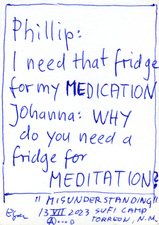 Phillip:
I need that fridge
for my MEDICATION
Johanna: WHY
do you need a
fridge for
MEDITATION?
"MISUNDERSTANDING"
13 VII 2023 SUFI CAMP
TORREON, N.M.